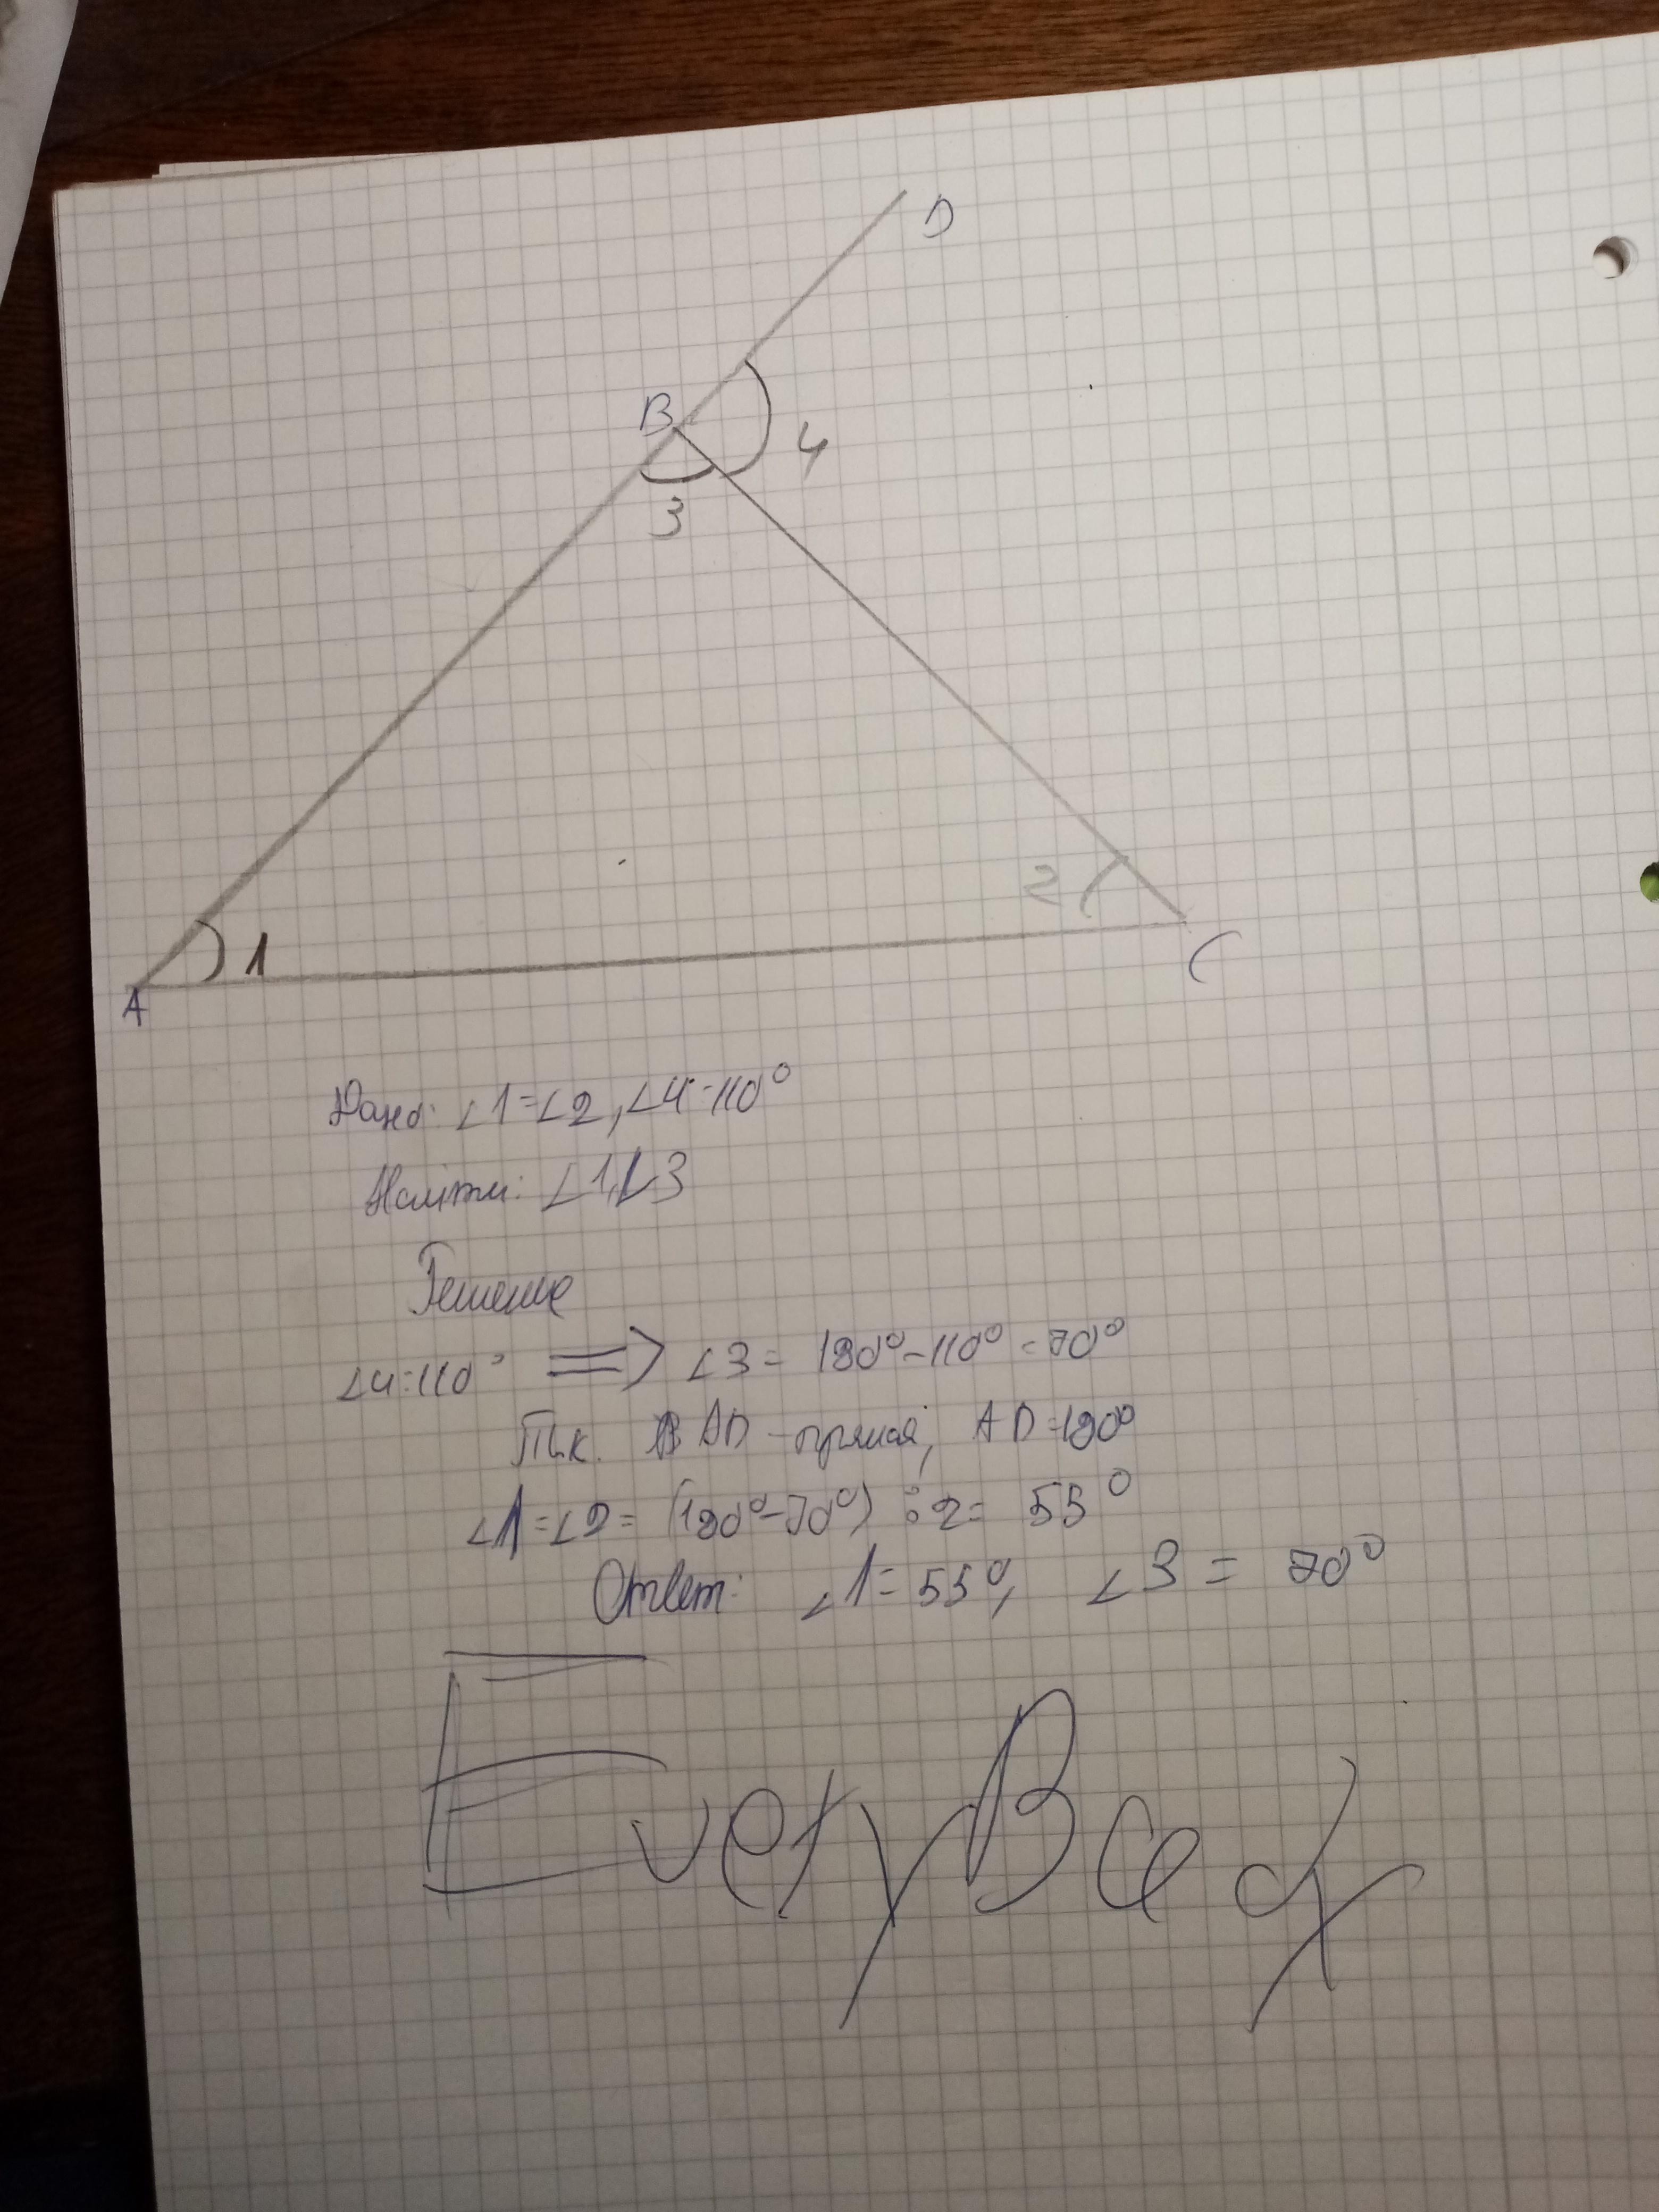 D
B
4
3
2
1
A
C
Дано: ∠1=∠2, ∠4=110°
Найти: ∠1, ∠3
Решение
∠4=110° => ∠3 = 180°-110°=70°
Т.к. AD - прямая, AD=180°
∠1=∠2= (180°-70°) : 2= 55°
Ответ: ∠1= 55°, ∠3 = 70°